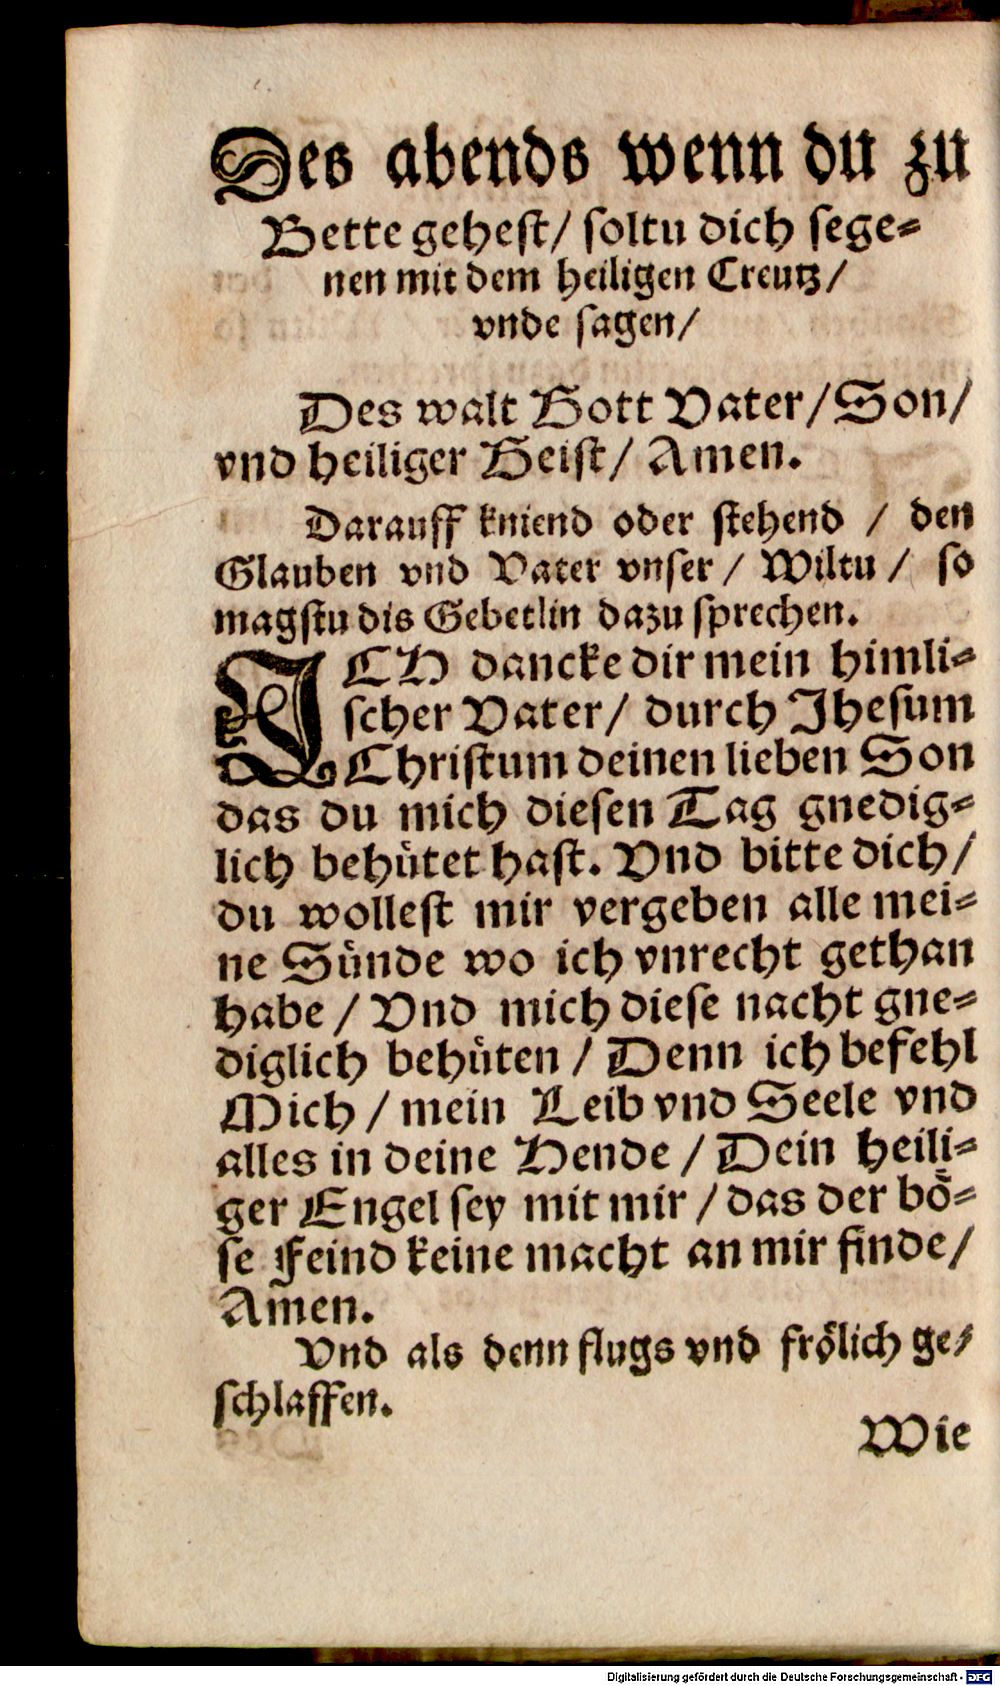 Des abends wenn du zu
Bette gehest/ soltu dich sege⸗
nen mit dem heiligen Creutz/
vnde sagen/
Des walt Gott Vater/ Son/
vnd heiliger Geist/ Amen.
Darauff kniend oder stehend / den
Glauben vnd Vater vnser / Wiltu / so
magstu dis Gebetlin dazu sprechen.
ICH dancke dir mein himli⸗
scher Vater/ durch Jhesum
Christum deinen lieben Son
das du mich diesen Tag gnedig⸗
lich behuͤtet hast. Vnd bitte dich/
du wollest mir vergeben alle mei⸗
ne Suͤnde wo ich vnrecht gethan
habe / Vnd mich diese nacht gne⸗
diglich behuͤten / Denn ich befehl
Mich / mein Leib vnd Seele vnd
alles in deine Hende / Dein heili⸗
ger Engel sey mit mir / das der boͤ⸗
se Feind keine macht an mir finde/
Amen.
Vnd als denn flugs vnd froͤlich ge⸗
schlaffen.
Wie
Digitalisierung gefördert durch die Deutsche Forschungsgemeinschaft - DFG